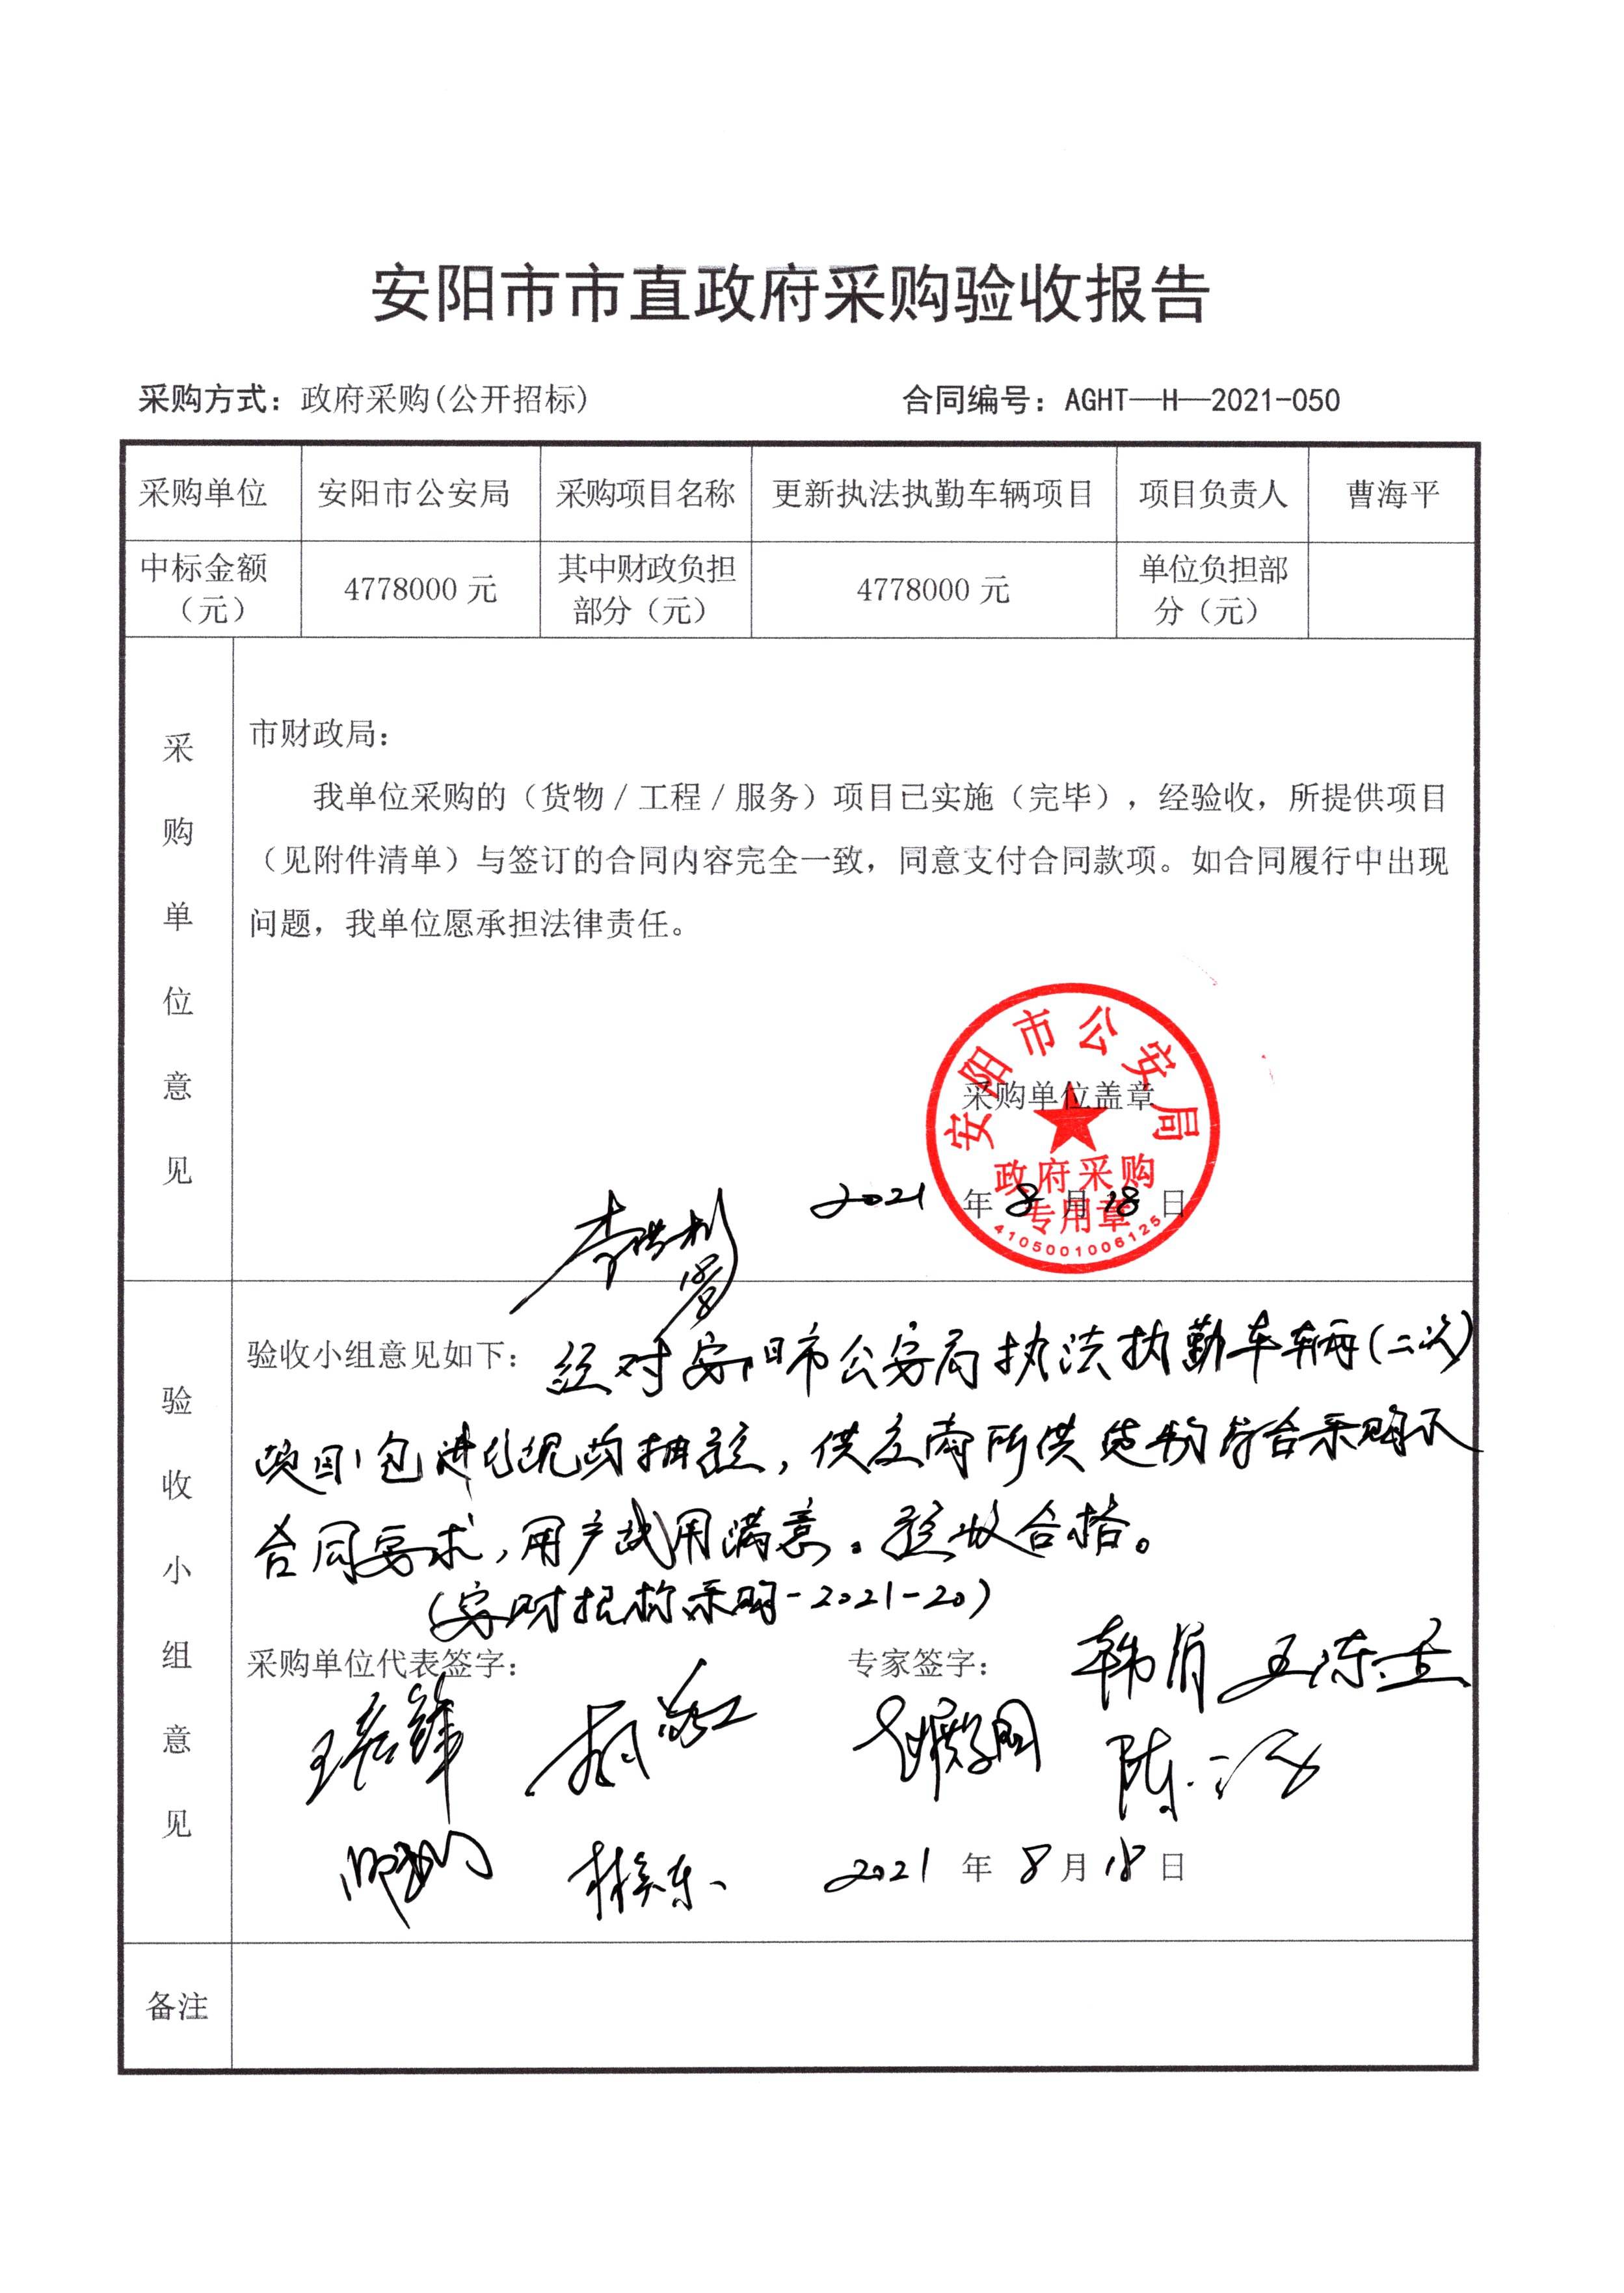 安阳市市直政府采购验收报告
采购方式：政府采购(公开招标) 合同编号：AGHT—H—2021-050
采购单位 安阳市公安局 采购项目名称 更新执法执勤车辆项目 项目负责人 曹海平
中标金额（元） 4778000 元 其中财政负担部分（元） 4778000 元 单位负担部分（元）
采购单位意见
市财政局：
我单位采购的（货物／工程／服务）项目已实施（完毕），经验收，所提供项目
（见附件清单）与签订的合同内容完全一致，同意支付合同款项。如合同履行中出现
问题，我单位愿承担法律责任。
安阳市公安局
采购单位盖章
政府采购
2021 年 8 月 18 日
专用章
4105001006125
验收小组意见
验收小组意见如下：经对安阳市公安局执法执勤车辆(二次)
项目1包进行现场验，供应商所供货物符合采购
合同要求，用户试用满意。验收合格。
(安财招标采购-2021-20)
采购单位代表签字： 专家签字：
陈
2021 年 8 月 18 日
备注